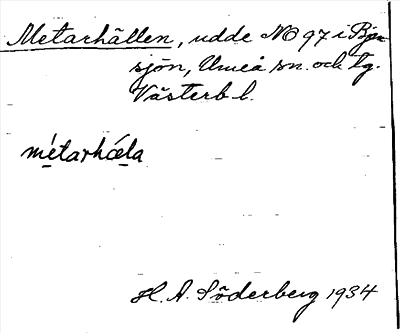 Metarhällen, udde NO 97 i
sjön, Umeå sn. och tg.
Västerb l.
métarhæla
H. A. Söderberg 1934